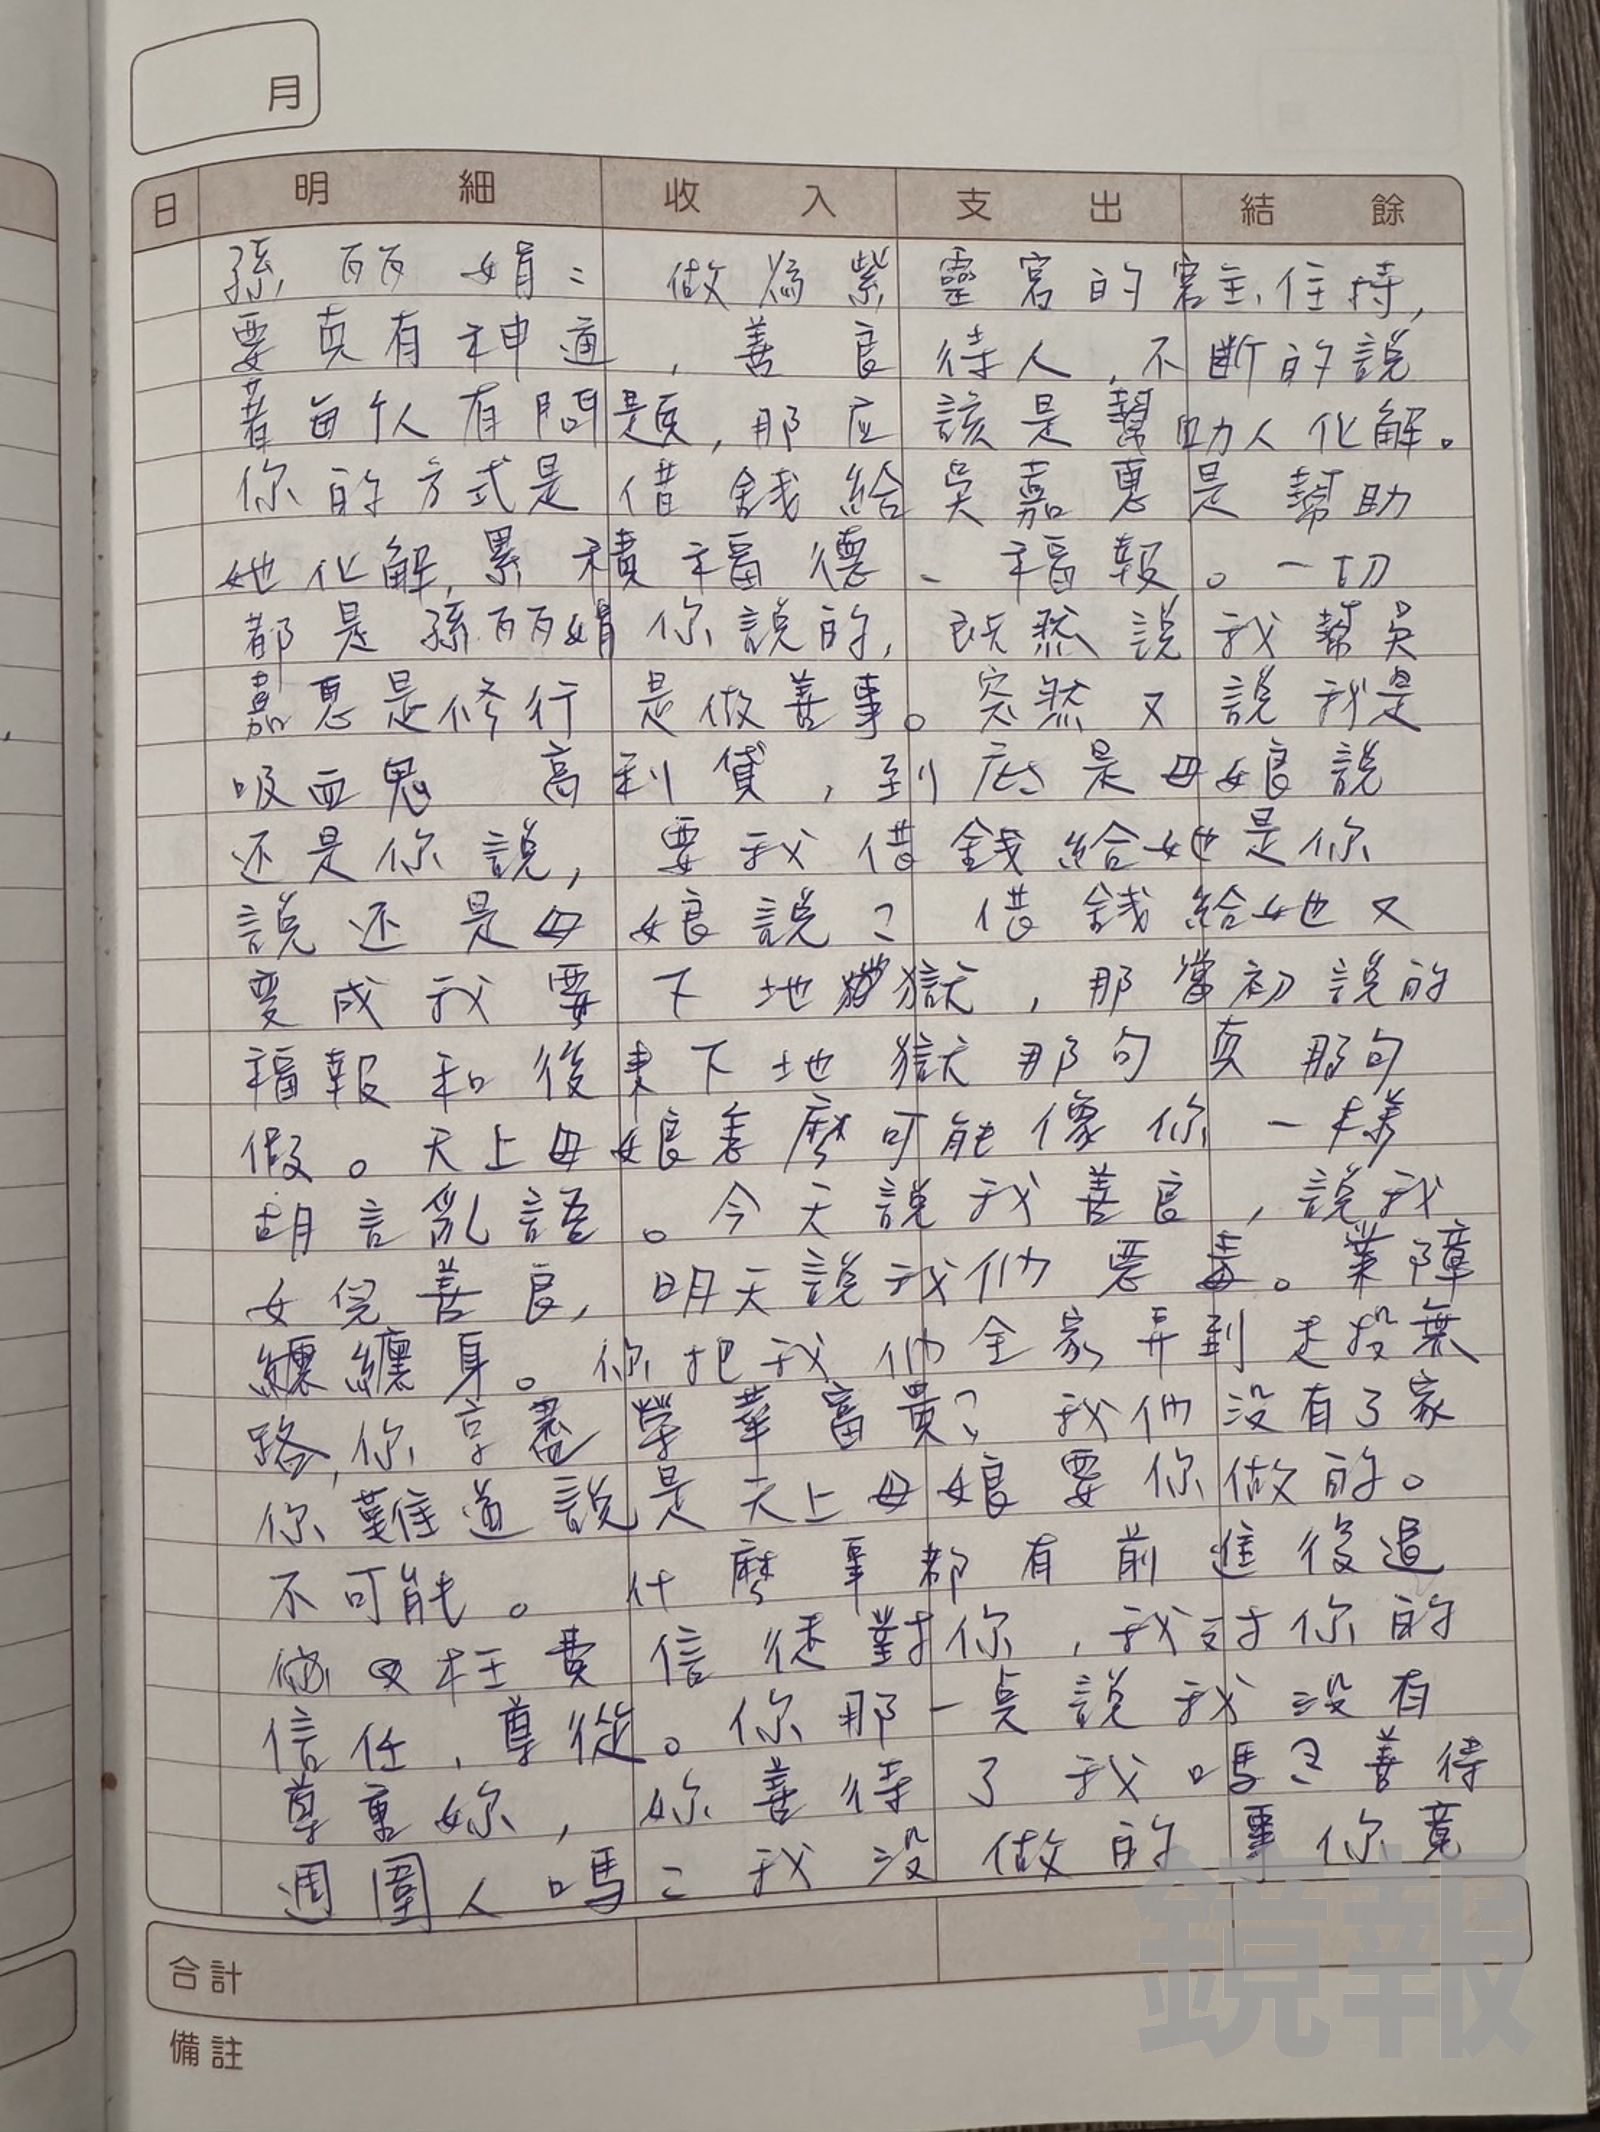 月
日 明細 收入 支出 結餘
孫丽娟：做為紫靈宮的宮主、住持，
要真有神通，善良待人，不斷的說
著每个人有問題，那应該是幫助人化解。
你的方式是借錢給吳嘉惠是幫助
她化解，累積福德、福報。一切
都是孫丽娟你說的，既然說我幫吳
嘉惠是修行是做善事。突然又說我是
吸血鬼 高利貸，到底是母娘說
还是你說，要我借錢給她是你
說还是母娘說？借錢給她又
變成我要下地獄，那當初說的
福報和後來下地獄那句真那句
假。天上母娘怎麼可能像你一樣
胡言亂語。今天說我善良，說我
女兒善良，明天說我們惡毒。業障
纏纏身。你把我們全家弄到走投無
路，你享盡榮華富貴？我們沒有了家
你難道說是天上母娘要你做的。
不可能。什麼事都有前進後退
你又枉費信徒對你，我对你的
信任，尊從。你那一點說我沒有
尊重妳，妳善待了我嗎？善待
週圍人嗎？我沒做的事你竟
合計
備註
鏡報